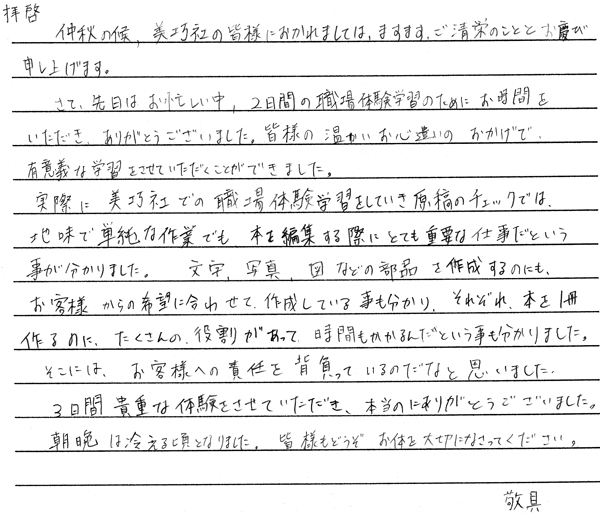 拝啓
仲秋の候、美巧社の皆様におかれましては、ますます、ご清栄のこととお慶び
申し上げます。
さて、先日はお忙しい中、2日間の職場体験学習のためにお時間を
いただき、ありがとうございました。皆様の温かいお心遣いのおかげで、
有意義な学習をさせていただくことができました。
実際に美巧社での職場体験学習をしていき原稿のチェックでは、
地味で単純な作業でも本を編集する際にとても重要な仕事だという
事が分かりました。文字、写真、図などの部品を作成するのにも、
お客様からの希望に合わせて、作成している事も分かり、それぞれ、本を1冊
作るのに、たくさんの、役割があって、時間もかかるんだという事も分かりました。
そこには、お客様への責任を背負っているのだなと思いました。
3日間貴重な体験をさせていただき、本当のにありがとうございました。
朝晩は冷える頃となりました。皆様もどうぞお体を大切になさってください。
敬具